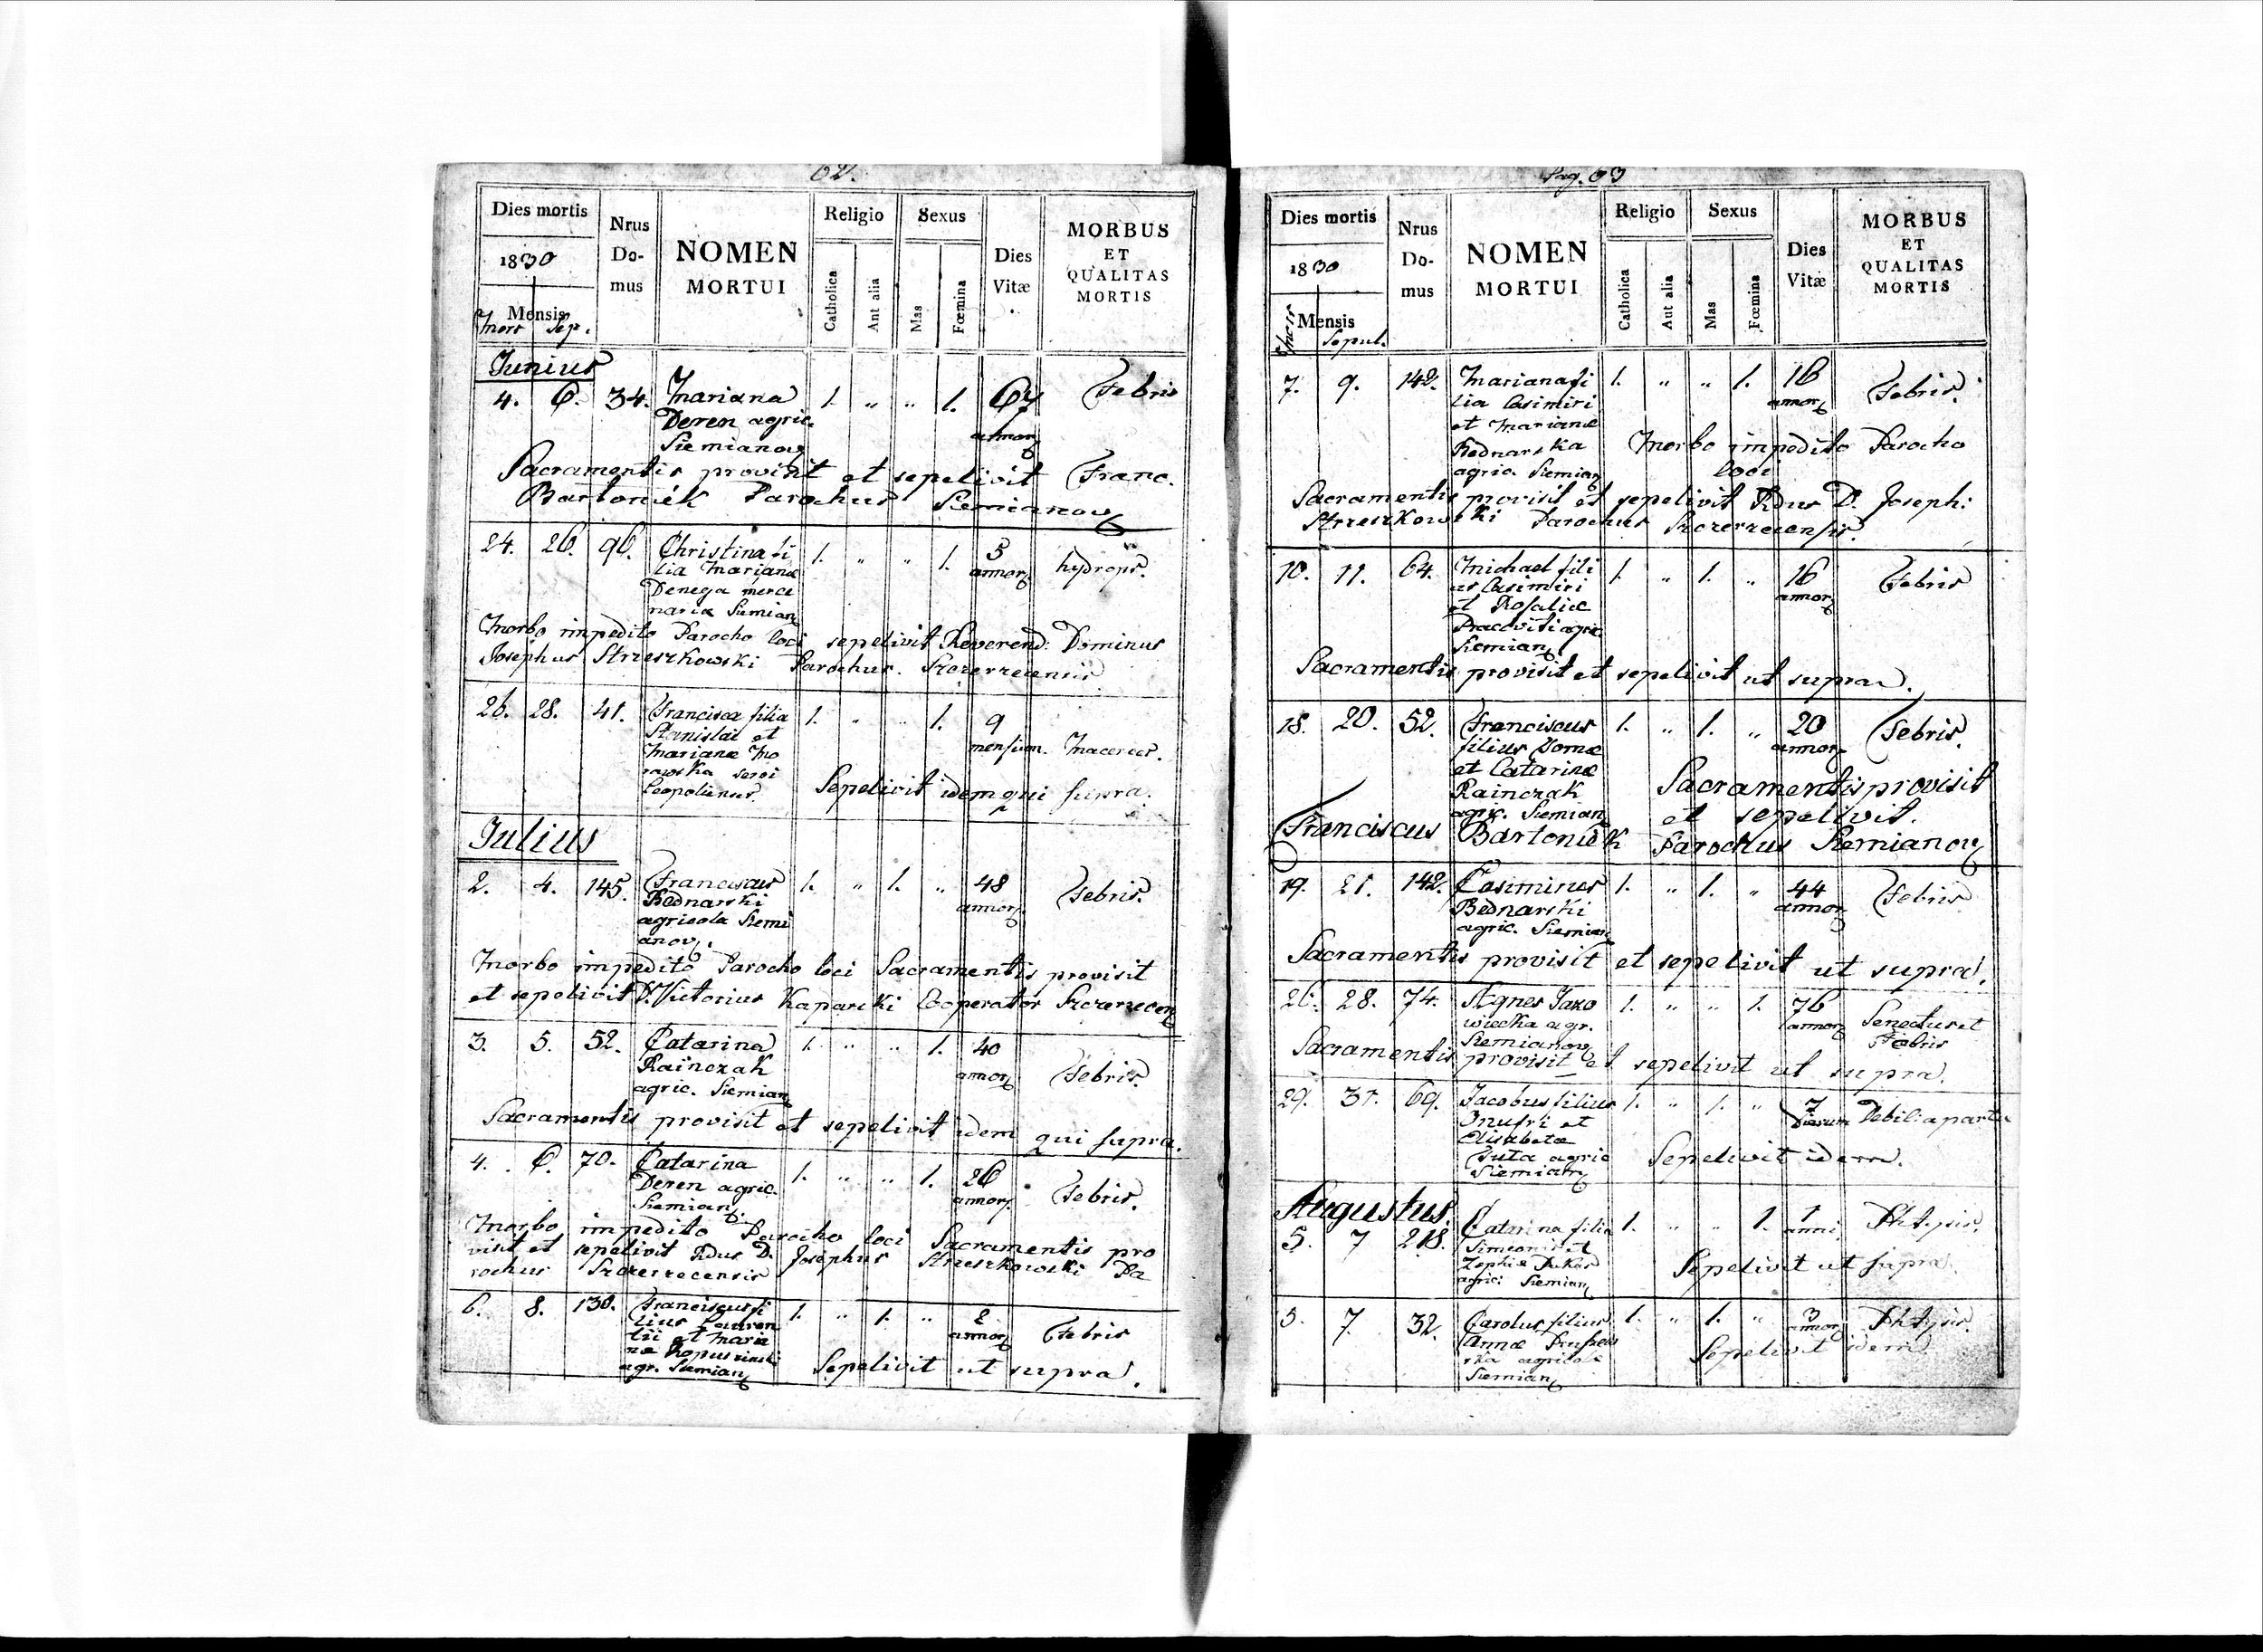 62.
Dies mortis
1830
Mensis
Mort Sep.
Nrus
Do-
mus
NOMEN
MORTUI
Religio
Catholica
Aut alia
Sexus
Mas
Fœmina
Dies
Vitæ
MORBUS
ET
QUALITAS
MORTIS
Junius
4. 6. 34. Mariana 1. " " 1. 67 Febris
Deren agric. annor
Siemianov
Sacramentis provisit et sepelivit Franc.
Bartoniek Parochus Siemianov
24. 26. 96. Christina fi 1. " " 1. 5 hydrops.
lia Marianæ annor
Denega merce
naria Siemian
Morbo impedito Parocho loci sepelivit Reverend: Dominus
Josephus Strzeszkowski Parochus Szczerzecensis
26. 28. 41. Francisca filia 1. " " 1. 9
Stanislai et mensium. Macerees.
Marianæ Mo
rawska servi
Leopoliensis.
Sepelivit idem qui supra.
Julius
2. 4. 145. Franciscus 1. " 1. " 48 Febris.
Bednarski annor
agricola Siemi
anov.
Morbo impedito Parocho loci Sacramentis provisit
et sepelivit D. Victorius Kaparski Cooperator Szczerzecen
3. 5. 52. Catarina 1. " " 1. 40 Febris.
Rainczak annor
agric. Siemian
Sacramentis provisit et sepelivit idem qui supra.
4. 6. 70. Catarina 1. " " 1. 26 Febris.
Deren agric. annor
Siemian
Morbo impedito Parocho loci Sacramentis pro
visit et sepelivit Rdus D. Josephus Strzeszkowski Pa
rochus Szczerzecensis
6. 8. 130. Franciscus fi 1. " 1. " 2 Febris
lius Lauren annor
tii et Maria
næ
agr. Siemian
Sepelivit ut supra.
Pag. 63
Dies mortis
1830
Mensis
Mort Sepul.
Nrus
Do-
mus
NOMEN
MORTUI
Religio
Catholica
Aut alia
Sexus
Mas
Fœmina
Dies
Vitæ
MORBUS
ET
QUALITAS
MORTIS
7. 9. 142. Mariana fi 1. " " 1. 16 Febris.
lia Casimiri annor
et Marianæ
Bednarska
agric. Siemian
Morbo impedito Parocho
loci
Sacramentis provisit et sepelivit Rdus D. Joseph:
Strzeszkowski Parochus Szczerzecensis.
10. 11. 64. Michael fili 1. " 1. " 16 Febris
us Casimiri annor
et Rosaliæ
Pracoviti agric
Siemian
Sacramentis provisit et sepelivit ut supra.
18. 20. 52. Franciscus 1. " 1. " 20 Febris.
filius Tomæ annor
et Catarinæ
Rainczak
agric. Siemian
Sacramentis provisit
et sepelivit.
Franciscus Bartoniek Parochus Siemianov
19. 21. 142. Casimirus 1. " 1. " 44 Febris
Bednarski annor
agric. Siemian
Sacramentis provisit et sepelivit ut supra.
26. 28. 74. Agnes Jaxo 1. " " 1. 76 Senectus et
wiecka agr. annor Febris
Siemianov
Sacramentis provisit et sepelivit ut supra.
29. 31. 69. Jacobus filius 1. " 1. " 7 Debil: a partu
Onufri et Dierum
Elisabetæ
Juta agric
Siemian
Sepelivit idem.
Augustus.
5. 7 218. Catarina filia 1. " " 1. 1 Phtysis.
Simeonis et anni
Zophiæ
agric: Siemian
Sepelivit ut supra.
5. 7. 32. Carolus filius 1. " 1. " 3 Phtysis.
Annæ annor
agricolæ
Siemian
Sepelivit idem